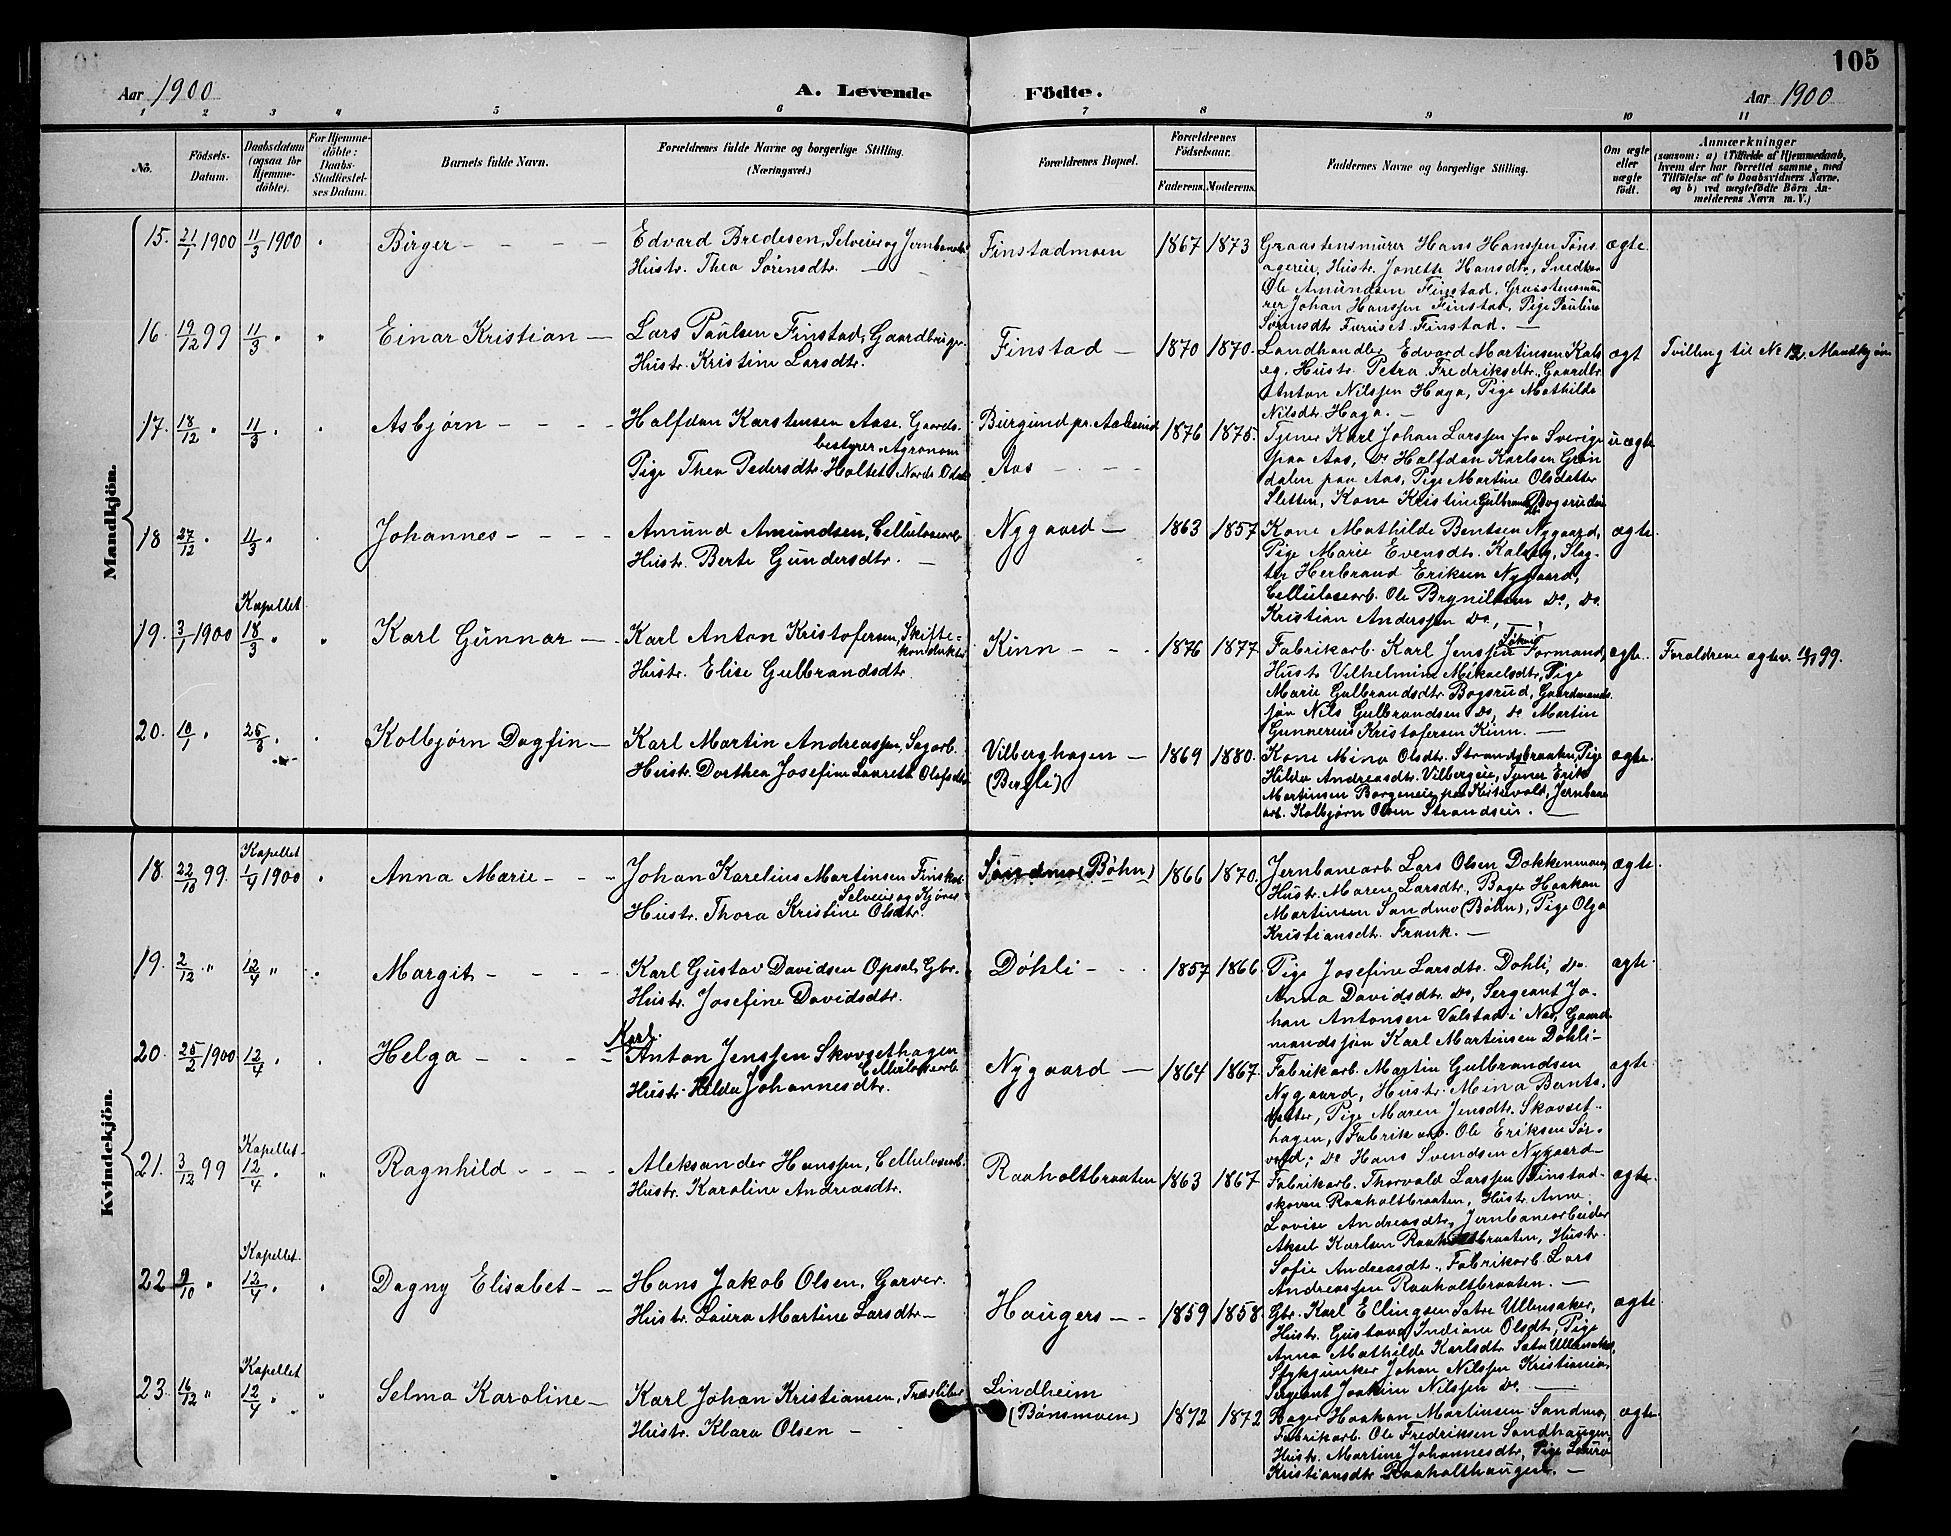 105
Aar 1900
A. Levende Födte.
Aar 1900
1 2 3 4 5 6 7 8 9 10 11
No.
Födsels-Datum.
Daabsdatum (ogsaa for Hjemme-döbte).
For Hjemme-döbte: Daabs-Stadfæstel-ses Datum.
Barnets fulde Navn.
Forældrenes fulde Navne og borgerlige Stilling. (Næringsvei.)
Forældrenes Bopæl.
Forældrenes Födselsaar.
Faderens. Moderens.
Faddernes Navne og borgerlige Stilling.
Om ægte eller uægte födt.
Anmærkninger
(saasom: a) i Tilfælde af Hjemmedaab,
hvem der har forrettet samme, med
Tilföielse af to Daabsvidners Navne,
og b) ved uægtefödte Börn An-
melderens Navn m. V.)
Mandkjön.
15. 21/1 1900 11/3 1900 Birger
Edvard Bredesen, Selveier og
Hustr. Thea Sörensdtr.
Finstadmoen 1867 1873
Graastensmurer Hans Hanssen
Hustr. Jonette Hansdtr.,
Ole Amundsen Finstad, Graastensmu-
rer Johan Hanssen Finstad, Pige Pauline
Sörensdtr. Furuset Finstad.
ægte.
16 19/12 99 11/3 " Einar Kristian
Lars Paulsen Finstad, Gaardbruger.
Hustr. Kristine Larsdtr.
Finstad 1870 1870.
Landhandler Edvard Martinsen Kals
eg, Hustr. Petra Fredriksdtr., Gaardbr.
Anton Nilssen Haga, Pige Mathilde
Nilsdtr. Haga.
ægt
Tvilling til No 12, Mandkjön
17. 18/12 " 11/3 " Asbjørn
Halfdan Karstensen Aase, Gaards-
bestyrer, Agronom
Pige Thea Pedersdtr. Holtet Nordre Odalen
Burgund pr. Aalesund
Aas
1876 1875.
Tjener Karl Johan Larssen fra Sverige
paa Aas, Do Halfdan Karlsen Grön
dalen paa Aas, Pige Martine Olsdatter
Sletten, Kone Kristine Gulbrandsdtr.
uægte
18 27/12 " 11/3 " Johannes
Amund Amundsen, Cellulosearb.
Hustr. Berte Gundersdtr.
Nygaard 1863 1857
Kone Mathilde Bentsen Nygaard,
Pige Marie Evensdtr. Kalseg, Slag-
ter Herbrand Eriksen Nygaard,
Cellulosearb. Ole Brynilsen Do, Do.
Kristian Anderssen Do.,
ægte.
19. 3/1 1900 Kapellet 18/3 " Karl Gunnar
Karl Anton Kristofersen, Skifte-
konduktör
Hustr. Elise Gulbrandsdtr.
Kinn 1876 1877
Fabrikarb. Karl Jenssen Formand,
Hustr. Vilhelmine Mikaelsdtr., Pige
Marie Gulbrandsdtr. Bogsrud, Gaardmands
sön Nils Gulbrandsen Do, Do Martin
Gunnerius Kristofersen Kinn.
ægte.
Foraldrene ægtev. 99.
20. 10/1 " 25/3 " Kolbjørn Dagfin
Karl Martin Andreassen, Sagarb.
Hustr. Dorthea Josefine Laurette Olafsdtr.
Vilberghagen
(Bergli)
1869 1880.
Kone Mina Olsdtr. Strandsbraaten, Pige
Hilda Andreasdtr. Vilbergeie, Tjener Erik
Martinsen Borgeneie paa, Jernbane
arb. Kolbjørn Olsen Strandseie.
ægte.
Kvindekjön.
18. 22/10 99. Kapellet 1/4 1900 Anna Marie
Johan Karelius Martinsen
Selveier og
Hustr. Thora Kristine Olsdtr.
Sandmo (Böhn) 1866 1870.
Jernbanearb Lars Olsen Dokkenmoen,
Hustr. Maren Larsdtr., Bager Haakon
Martinsen Sandmo (Böhn), Pige Olga
Kristiansdtr. Frank.
ægte.
19. 2/12 " 12/4 " Margit
Karl Gustav Davidsen Opsal, Gbr.
Hustr. Josefine Davidsdtr.
Döhli 1857 1866
Pige Josefine Larsdtr. Dohli, Do.
Anna Davidsdtr. Do, Sergeant Jo-
han Antonsen Valstad i Nes, Gaard
mandssön Karl Martinsen Döhli
ægte.
20. 25/2 1900 12/4 " Helga
Karl
Anton Jenssen Skovsethagen
Cellulosearb
Hustr. Hilda Johannesdtr.
Nygaard 1864 1867.
Fabrikarb. Martin Gulbrandsen
Nygaard, Hustr. Mina Bernts.
datter, Pige Maren Jensdtr. Skovset-
hagen, Fabrikarb. Ole Eriksen Sör-
vold, Do Hans Svendsen Nygaard
ægte.
21. 3/12 99 Kapellet 12/4 " Ragnhild
Aleksander Hanssen, Cellulosearb.
Hustr. Karoline Andreasdtr.
Raaholtbraaten 1863 1867
Fabrikarb. Thorvald Larssen Finstad-
skoven Raaholtbraaten, Hustr. Anne
Lovise Andreasdtr., Jernbanearbeider
Aksel Karlsen Raaholtbraaten, Hustr.
Sofie Andreasdtr., Fabrikarb. Lars
Andreassen Raaholtbraaten.
ægte.
22 9/10 " Kapellet. 12/4 " Dagny Elisabet
Hans Jakob Olsen, Garver.
Hustr. Laura Martine Larsdtr.
Haugers 1859 1858.
Gbr. Karl Ellingsen Satre Ullensaker,
Hustr. Gustava Indiane Olsdtr., Pige
Anna Mathilde Karlsdtr. Satre Ullensaker,
Stykjunker Johan Nilssen Kristiania,
Sergeant Joakim Nilssen Do.
ægte
23. 16/12 " Kapellet 12/4 " Selma Karoline
Karl Johan Kristiansen, Træsliber
Hustr. Klara Olsen
Lindheim
(Bönsmoen)
1872 1872
Bager Haakon Martinsen Sandmo,
Fabrikarb. Ole Fredriksen Sandhaugen,
Hustr. Martine Johannesdtr., Pige Laura
Kristiansdtr. Raaholthaugen.
ægte.